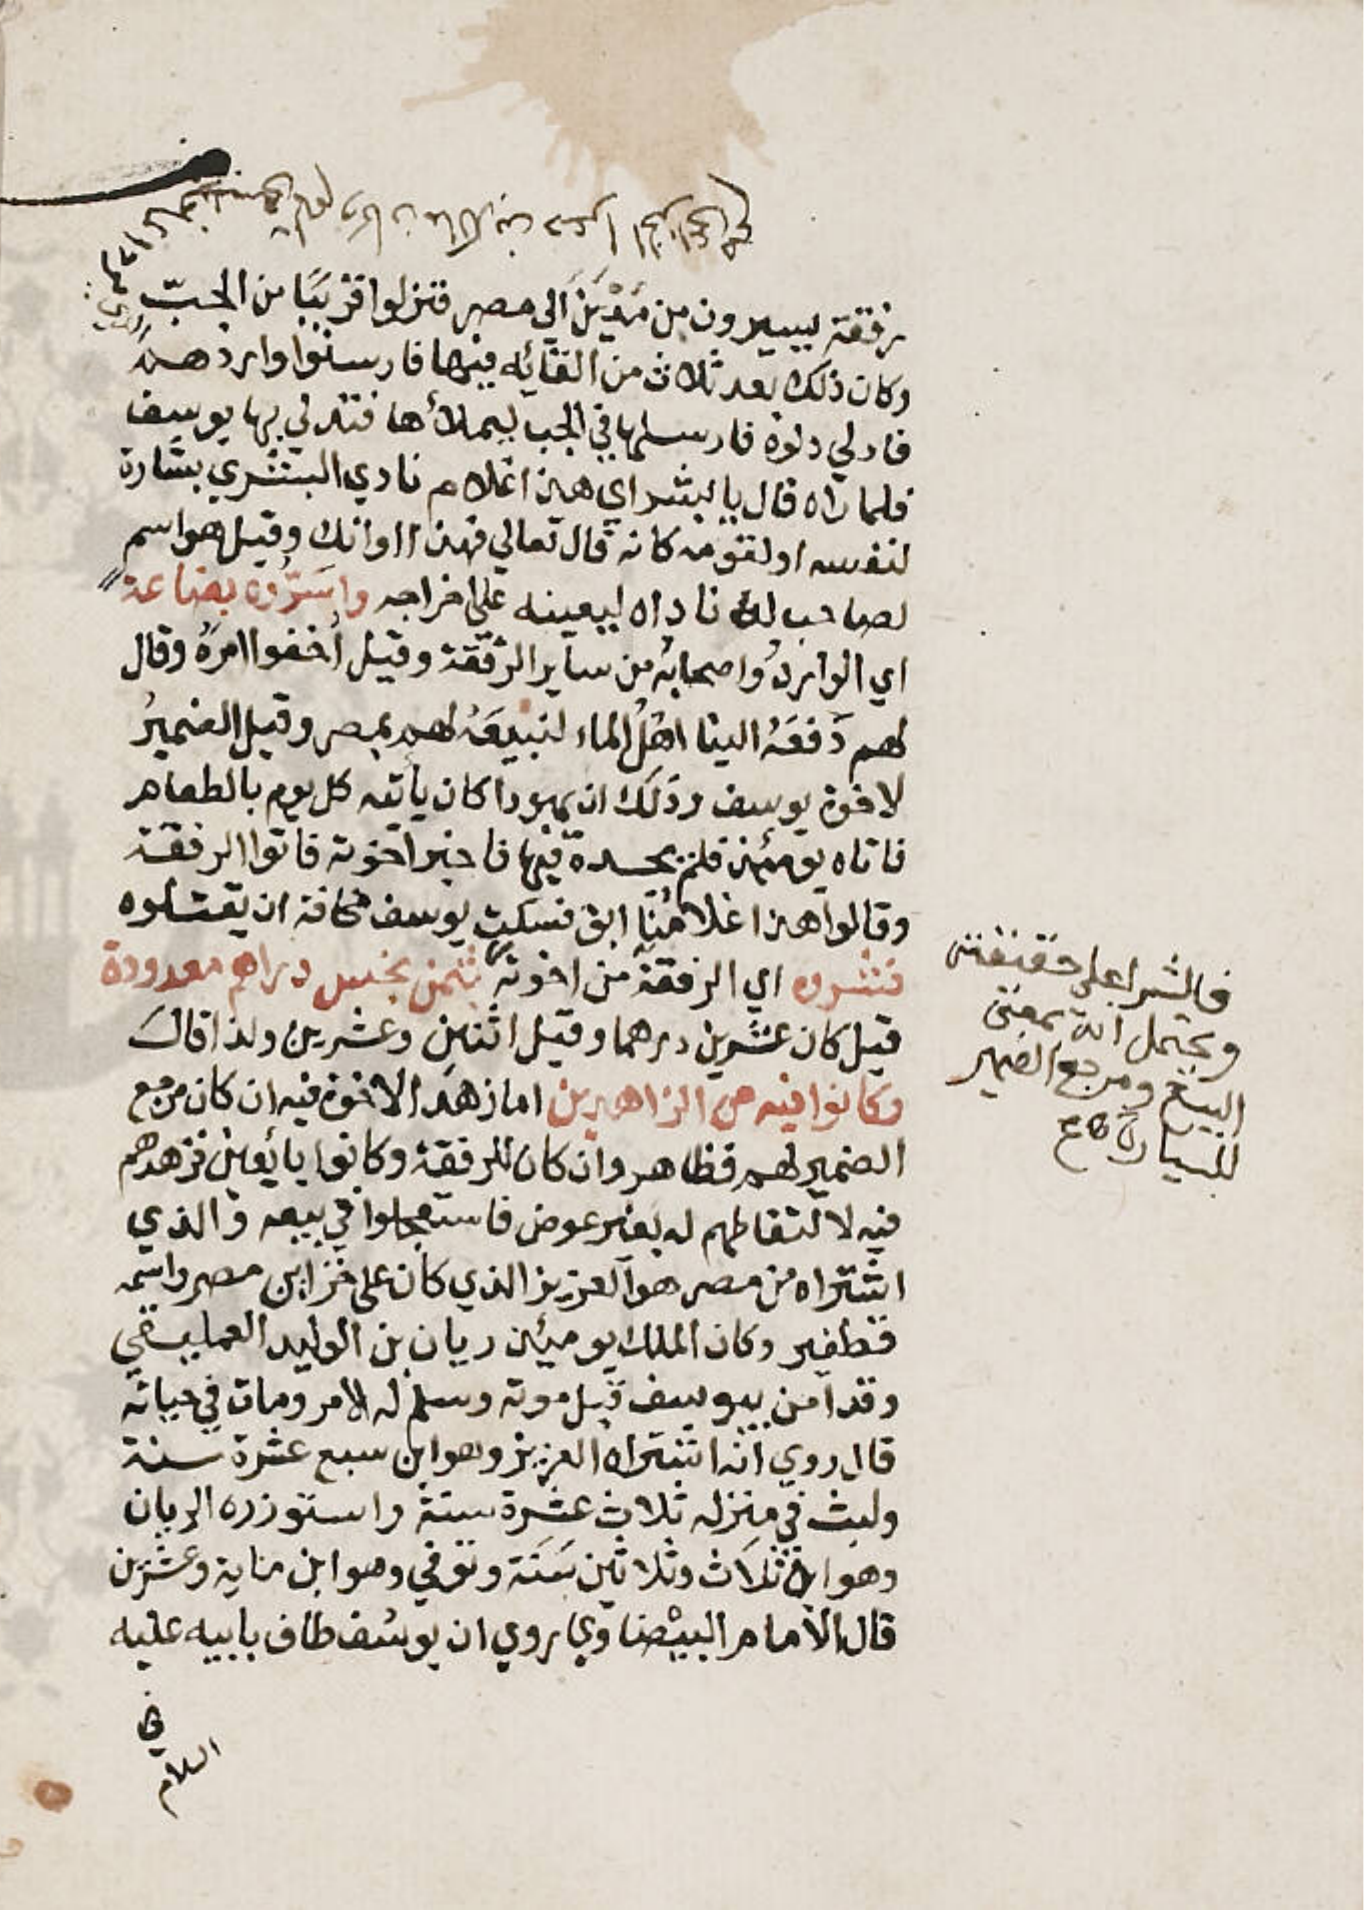 رفقة يسيرون من مَدْيَنَ الي مصر فنزلوا قريبًا من الجبّ
وكان ذلك بعد ثلاث من القائه فيها فارسلوا واردهم
فادلي دلوه فارسلها في الجب ليملأها فتدلي بها يوسف
فلما راه قال يا بشراي هذا غلام نادي البشري بشارة
لنفسه او لقومه كانه قال تعالي فهذا اوانك وقيل هو اسم
لصاحب له ناداه ليعينه علي اخراجه واسَرّوه بضاعة
اي الواردُ واصحابُه من ساير الرفقة وقيل اخفوا امرَهُ وقال
لهم دَفعَهُ الينا اهْلُ الماء لنبيعَهُ لهم بمصر وقيل الضميرُ
لاخوة يوسف وذلك ان يهودا كان يأتيه كل يوم بالطعام
فاتاه يومئذ فلم يجده فيها فاخبر اخوته فاتوا الرفقة
وقالوا هذا غلامُنا ابق فسكت يوسف مخافة ان يقتلوه
فشروه اي الرفقة من اخوته بثمن بخس دراهم معدودة
قيل كان عشرين درهما وقيل اثنين وعشرين ولذا قال
وكانوا فيه من الزاهدين اما زهد الاخوة فيه ان كان مرجع
الضمير لهم فظاهر وان كان للرفقة وكانوا بائعين فزهدهم
فيه لالتقاطهم له بغير عوض فاستعجلوا في بيعه والذي
اشتراه من مصر هو العزيز الذي كان علي خزاين مصر واسمه
قطفير وكان الملك يوميئذ ريان بن الوليد العمليقي
وقد امن بيوسف قبل موته وسلم له الامر ومات في حياته
قال روي انه اشتراه العزيز وهو ابن سبع عشرة سنة
ولبث في منزله ثلاث عشرة سنة واستوزره الريان
وهو ابن ثلاث وثلاثين سَنَة وتوفي وهو ابن ماية وعشرين
قال الامام البيْضاوي روي ان يوسُف طاف بابيه عليه
السلام
في
فالشرا علي حقيقته
ويحتمل انه بمعني
البيع ومرجع الضمير
للسيارة